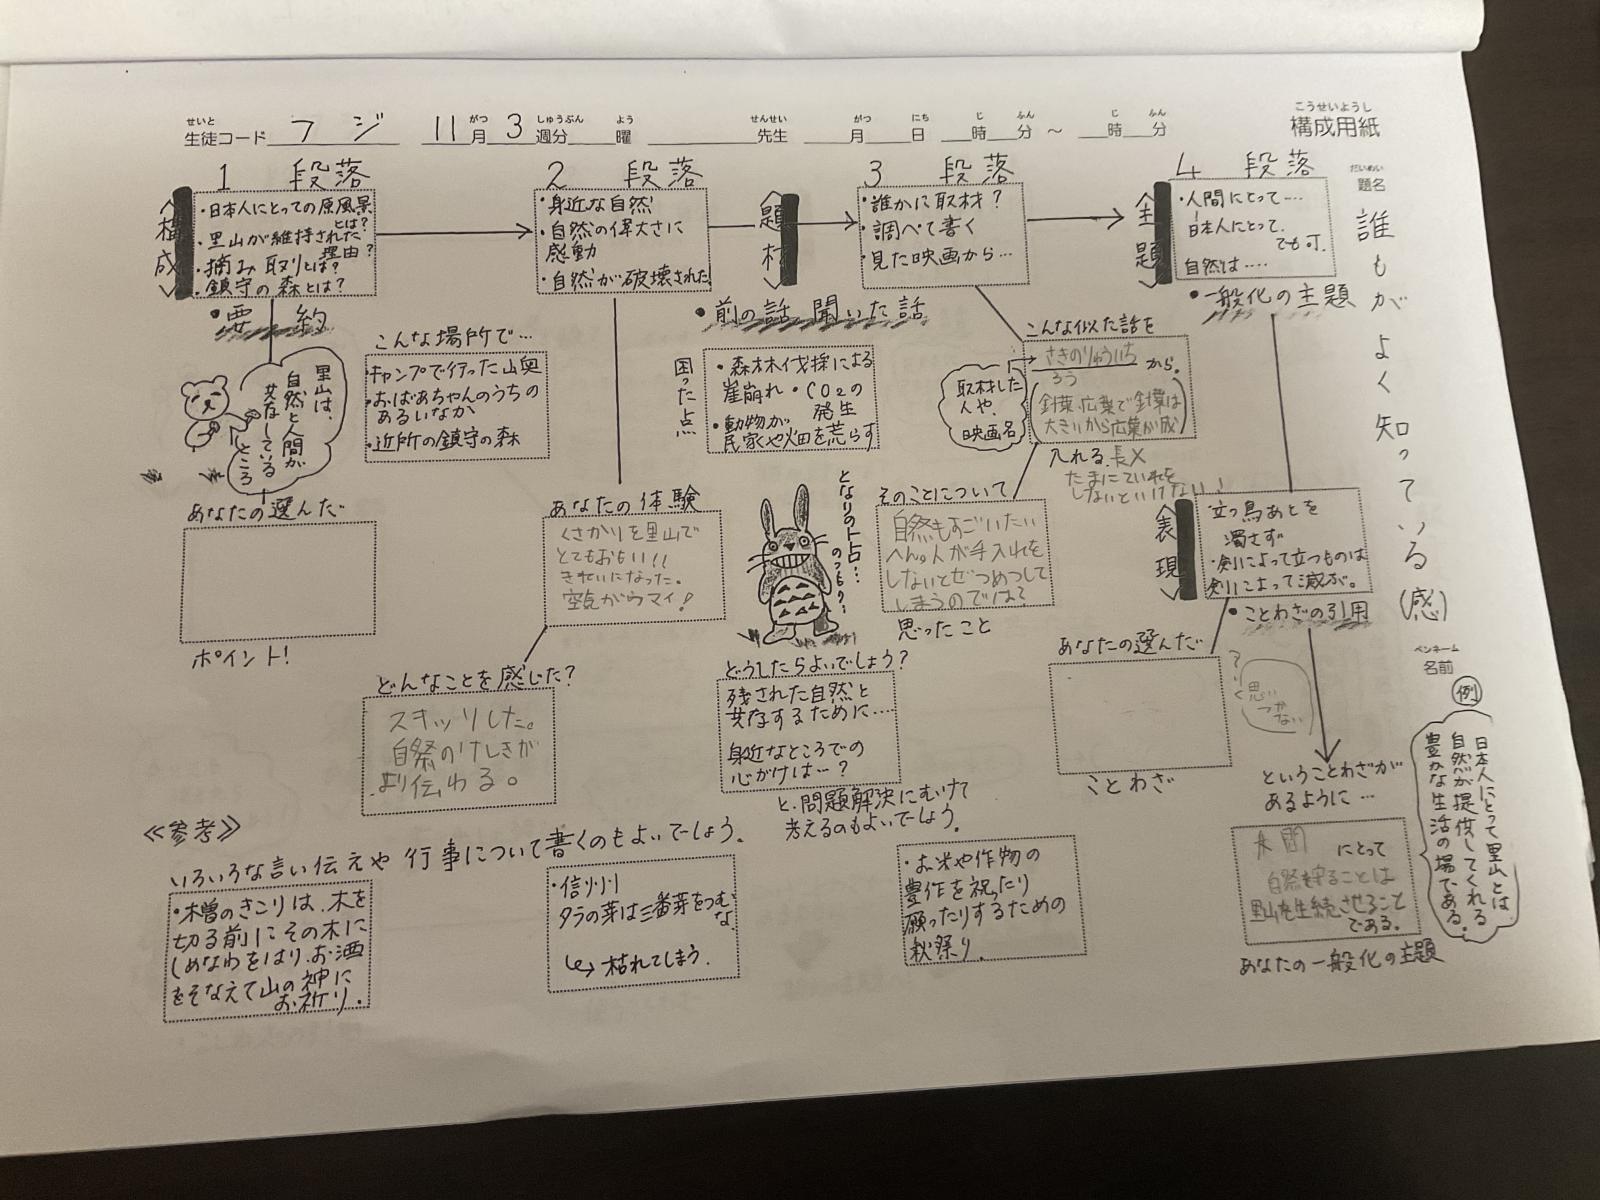 せいと がつ しゅうぶん よう せんせい がつ にち じ ふん じ ふん
生徒コード フジ 11月3週分 曜 先生 月 日 時 分 ～ 時 分
こうせいようし
構成用紙
だいめい
題名
誰もがよく知っている(感)
ペンネーム
名前
1 段落
構成
・日本人にとっての原風景とは?
・里山が維持された理由?
・摘み取りとは?
・鎮守の森とは?
・要約
里山は、
自然と人間が
共存している
ところ
あなたの選んだ
ポイント!
2 段落
・身近な自然
・自然の偉大さに
感動
・自然が破壊された
こんな場所で…
・キャンプで行った山奥
・おばあちゃんのうちの
あるいなか
・近所の鎮守の森
あなたの体験
くさかりを里山で
とてもおもい!!
きれいになった。
空気がウマイ!
どんなことを感じた?
スキッリした。
自祭のけしきが
より伝わる。
題材
・前の話 聞いた話
困った点
・森林伐採による
崖崩れ・CO2の
発生
・動物が
民家や畑を荒らす
となりのトトロ…
のつもり…
どうしたらよいでしょう?
残された自然と
共存するために…
身近なところでの
心がけは…?
と、問題解決にむけて
考えるのもよいでしょう。
3 段落
・誰かに取材?
・調べて書く
・見た映画から…
こんな似た話を
さきのりゅういち
ろう
から。
取材した
人や、
映画名
針葉、広葉で針葉は
大きいから広葉が成
入れる. 長×
たまにていれを
しないといけない!
そのことについて
自然もすごいたい
へん。人が手入れを
しないとぜつめつして
しまうのでは?
思ったこと
主題
4 段落
・人間にとって…
日本人にとって.
でも可.
自然は….
・一般化の主題
表現
・立つ鳥あとを
濁さず
・剣によって立つものは
剣によって滅ぶ。
・ことわざの引用
あなたの選んだ
ことわざ
思い
つか
ない
ということわざが
あるように…
にとって
自然を守ることは
里山を生続させること
である。
あなたの一般化の主題
例
日本人にとって里山とは
自然が提供してくれる
豊かな生活の場である。
≪参考≫
いろいろな言い伝えや 行事について書くのもよいでしょう。
・木曽のきこりは、木を
切る前にその木に
しめなわをはり、お酒
をそなえて山の神に
お祈り.
・信州
タラの芽は三番芽をつむな
↳枯れてしまう.
・お米や作物の
豊作を祝ったり
願ったりするための
秋祭り.